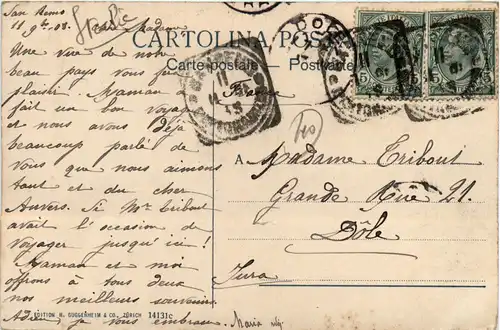 San Remo
11 9bre 08. Chère Madame
Une vue de notre
beau pays vous fera
plaisir. Maman a
fait un bon voyage
et nous avons déjà
beaucoup parlé de
vous que nous aimons
tant et du cher
Anvers. Si Mr Tribout
avait l'occasion de
voyager jusqu'ici !
Maman et moi
offrons à tous deux
nos meilleurs souvenirs.
Adieu, je vous embrasse. Maria
CARTOLINA POS
Carte postale Postkarte
France
A Madame Tribout
Grande Rue 21.
Dôle
Jura
EDITION H. GUGGENHEIM & CO., ZÜRICH 14131c